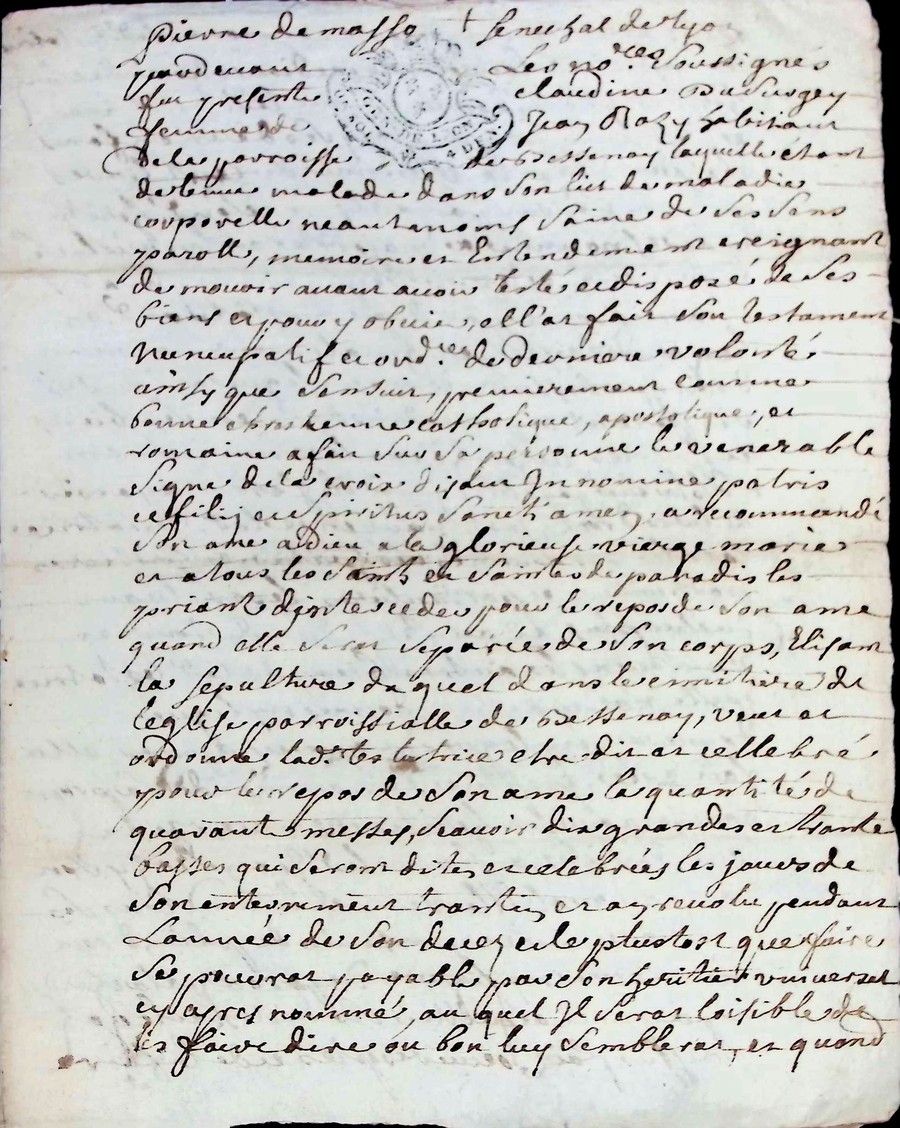 Pierre de masso + senechal de Lyon
pardevant Les no.res soussignés
fut presente claudine Du
femme de Jean habitant
de la parroisse de Bessenay laquelle etant
detenue malade dans son lict de maladie
corporelle neautmoins saine de ses sens
parolle, memoire et Entendement creignant
de mourir avant avoir testé et disposé de ses
biens et pour y obvier, ell'at fait son testament
Nuncupatif et ord.re de derniere volonté
ainsy que sensuit, premierement comme
bonne chrestienne catholique, apostolique, et
romaine a fait sur sa personne le venerable
signe de la croix disant In nomine patris
et filij et spiritus sancti amen, a recommandé
son ame a Dieu a la glorieuse vierge marie
et a tous les saints et saintes de paradis les
priant d'interceder pour le repos de son ame
quand elle serat separée de son corps, Elisant
la sepulture du quel dans le cimitiere de
leglise parroissialle de Bessenay, veut et
ordonne lad.e testatrice etre dit et cellebré
pour le repos de son ame la quantité de
quarante messes, scavoir dix grandes et trante
basses qui seront dites et celebrées les jours de
son enterrement trantin et an revolu pendant
L'année de son decez et le plustost que faire
se pourrat payable par son heritier universel
cy apres nommé, au quel Il serat loisible de
les faire dire ou bon luy semblerat, et quand